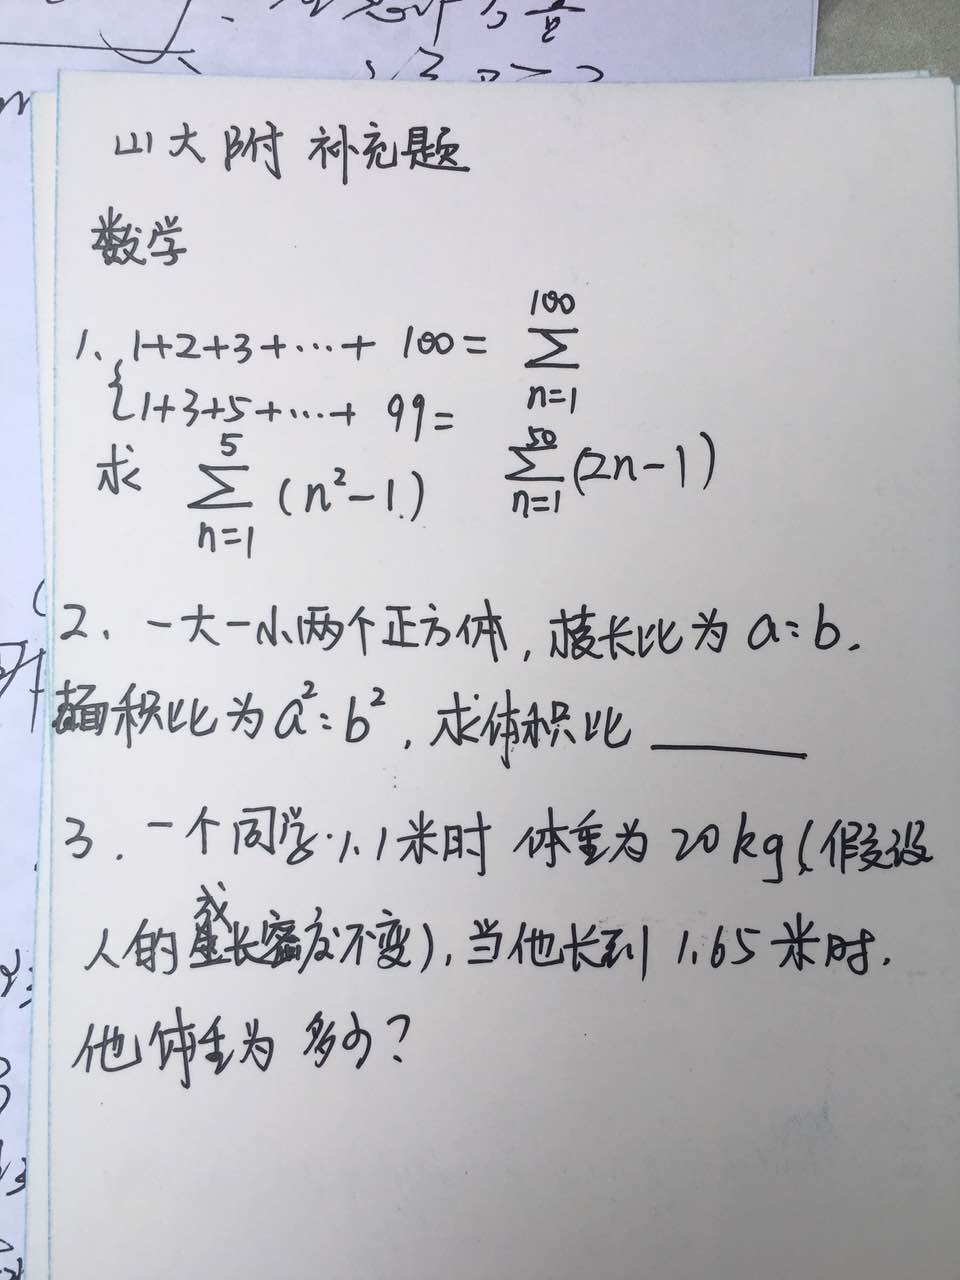 山大附 补充题
数学
1、1+2+3+…+ 100= 100∑n=1
{1+3+5+…+ 99=
求 5∑n=1 (n²-1) 50∑n=1 (2n-1)
2、一大一小两个正方体,棱长比为a:b.
面积比为a²:b²,求体积比______
3.一个同学1.1米时 体重为20kg(假设
人的成长密度不变),当他长到1.65米时.
他体重为 多少?